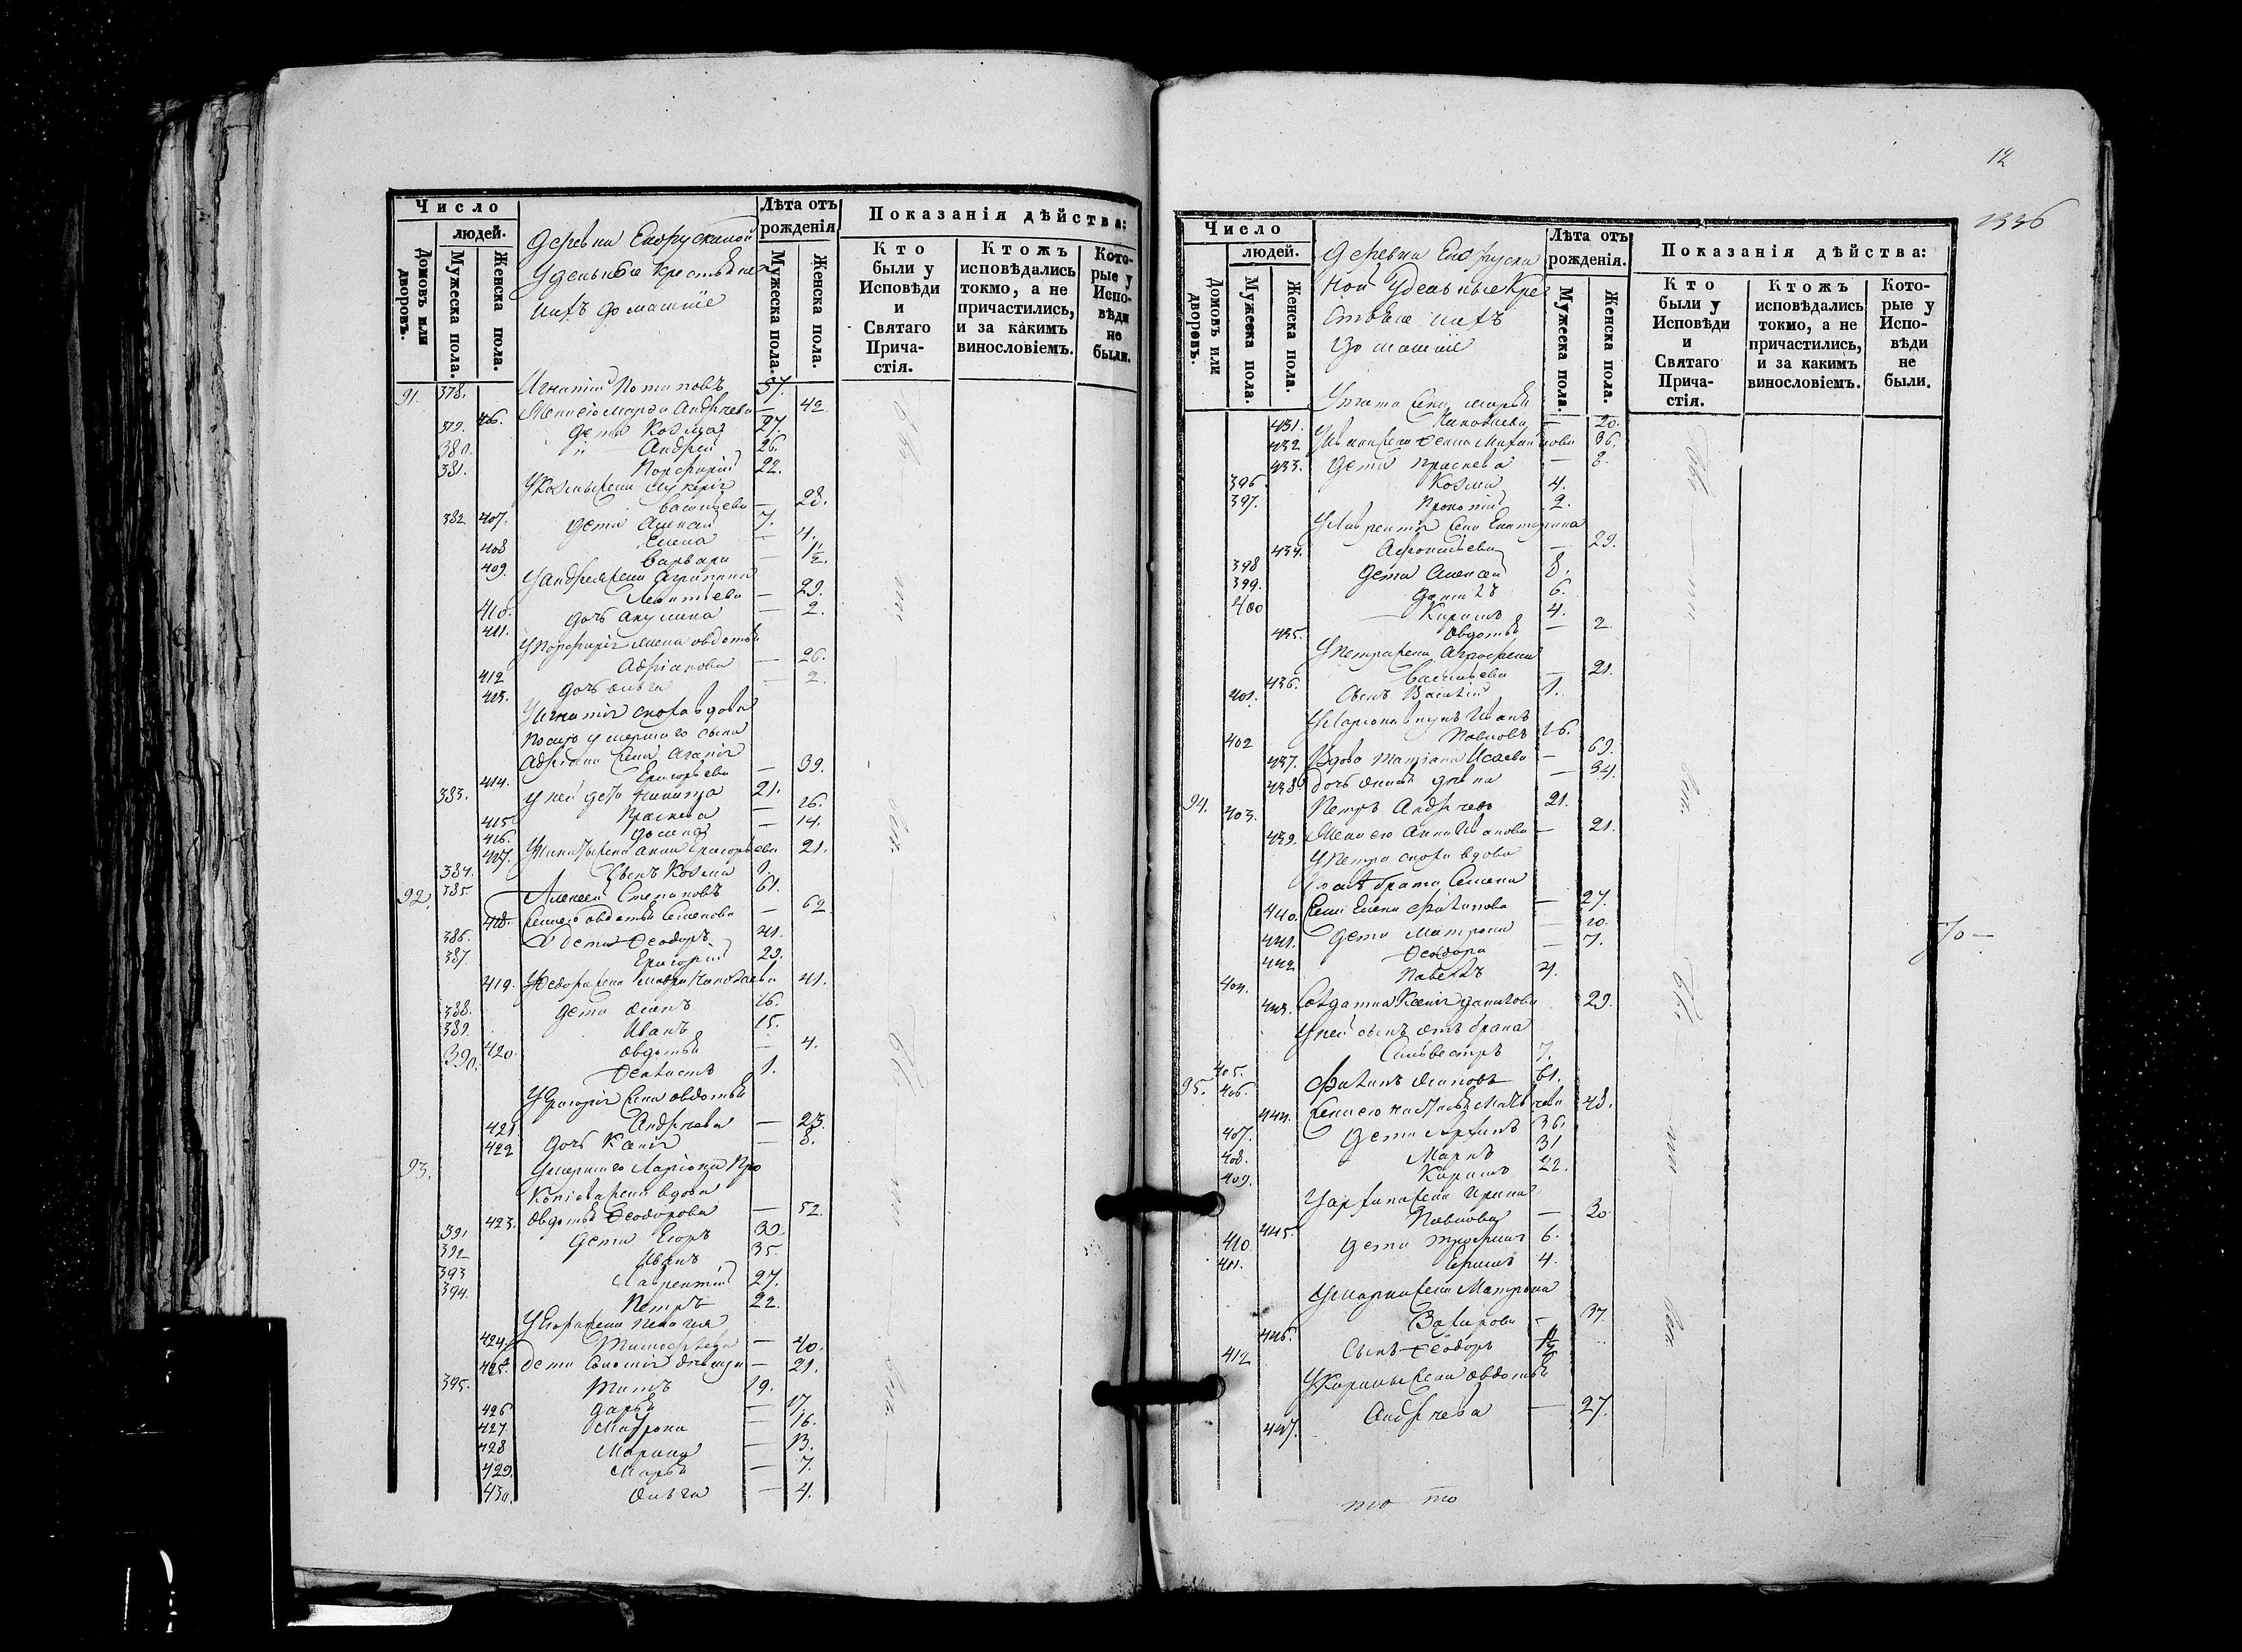 Число
людей.
Домовъ или дворовъ.
Мужеска пола.
Женска пола.
Деревни
Удельные крестьяне
ихъ домашніе
Лѣта отъ рожденія
Мужеска пола.
Женска пола.
Показанія дѣйства:
Кто были у Исповѣди и Святаго Причастія.
Ктожъ исповѣдались токмо, а не причастились, и за какимъ винословіемъ.
Которые у Исповѣди не были.
91. 378. Игнатій Потаповъ 57.
406. Жена его Марѳа Андреева — 42
379. дети Козма 27.
380. " Андрей 26.
381. Порфирій 22.
У Козмы жена
407. Васильева — 28.
382 дети Алексей 7.
408 Елена — 4.
409. Варвара — 1½
У Андрея жена Агрипина
410. Леонтьева — 29.
411. дочь Акулина — 2.
У Порфирія жена Овдотья
412 Адріанова — 26.
413. дочь Ольга — 2.
У Игнатія сноха вдова
После умершаго сына
Адріана жена Агапія
414. Григорьева — 39.
383. у ней дети Никита 21.
415 Прасковья — 16.
416. — 14.
417. У Никиты жена Анна Григорьева 21.
384. Сынъ Козма 1.
92. 385. Алексей Степановъ 61.
418. Жена его Овдотья Семенова — 62
386. дети Ѳеодоръ 41.
387. Григорій 29.
419. У Ѳедора жена Марѳа Николаева 41.
388. дети Осипъ 16.
389. Иванъ 15.
420. Овдотья — 4.
390. 1.
У Григорія жена Овдотья
421 Андреева — 23.
422 дочь Ксенія — 8.
93. Умершаго Ларіона Про
копіева жена вдова
423. Овдотья Ѳеодорова — 52.
391 дети Егоръ 39.
392 Иванъ 35.
393 Лаврентій 27.
394. Петръ 22.
У Егора жена Пелагея
424. Тимофеева — 40.
425. дети Соломія девица — 21.
395. Титъ 19.
426 Дарья — 17.
427. Матрона — 16.
428 Марина — 13.
429. Марья — 7.
430. Ольга — 4.
12
1336
Число
людей.
Домовъ или дворовъ.
Мужеска пола.
Женска пола.
Деревни
ной Удельные Кре
стьяне ихъ
домашніе
Лѣта отъ рожденія.
Мужеска пола.
Женска пола.
Показанія дѣйства:
Кто были у Исповѣди и Святаго Причастія.
Ктожъ исповѣдались токмо, а не причастились, и за какимъ винословіемъ.
Которые у Исповѣди не были.
У Тита жена Марья
431. Николаева — 20.
432 У Ивана жена Михайлова 36.
433. дети Прасковья — 8.
396. Козма 4.
397. Прокопій 2.
У Лаврентія жена Екатерина
434. Афонасьева — 29.
398 дети Алексей 8.
399. Данилъ 6.
400 Кирилъ 4.
435. Овдотья — 2
У Петра жена Агрофена
436. Васильева — 21.
401. Сынъ Василій 1.
У Ларіона внукъ Иванъ
402 Павловъ 16.
437. Вдова Татіана Исаева — 69.
438 дочь девка — 34.
94. 403. Петръ Андреевъ 21.
439. Жена его Анна Иванова — 21.
У Петра сноха вдова
После брата Семена
440. жена Елена Филипова — 27.
441. дети Матрона — 10.
442 Ѳеодора — 7.
404. Павелъ 4.
443. Солдатка Ксенія Данилова 29.
У ней сынъ отъ брака
405. Сильвестръ 7.
95. 406. Филипъ Осиповъ 61.
444. Жена его Настасья Матвеева 48.
407. дети Архипъ 36.
408. Маркъ 31
409. Кирилъ 22.
У Архипа жена Ирина
445. Павлова — 30
410 дети Трофимъ 6.
411. Ермилъ 4.
У Марка жена Матрона
446. Захарова — 37.
412 Сынъ Ѳеодоръ 1½
У Кирилы жена Овдотья
447. Андреева — 27.
70 —